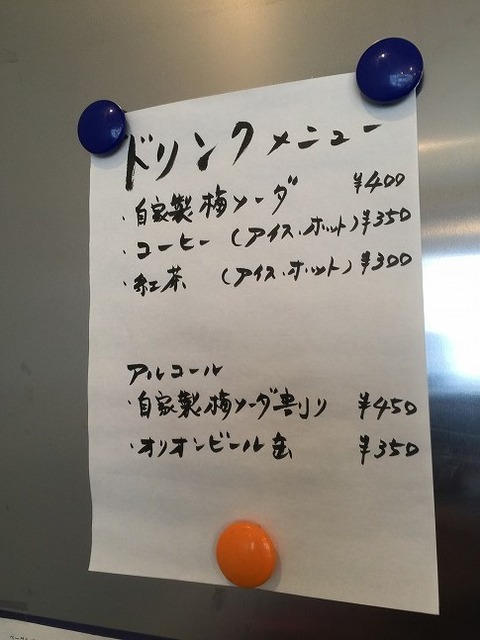 ドリンクメニュー
・自家製梅ソーダ ¥400
・コーヒー (アイス・ホット) ¥350
・紅茶 (アイス・ホット) ¥300
アルコール
・自家製梅ソーダ割り ¥450
・オリオンビール缶 ¥350